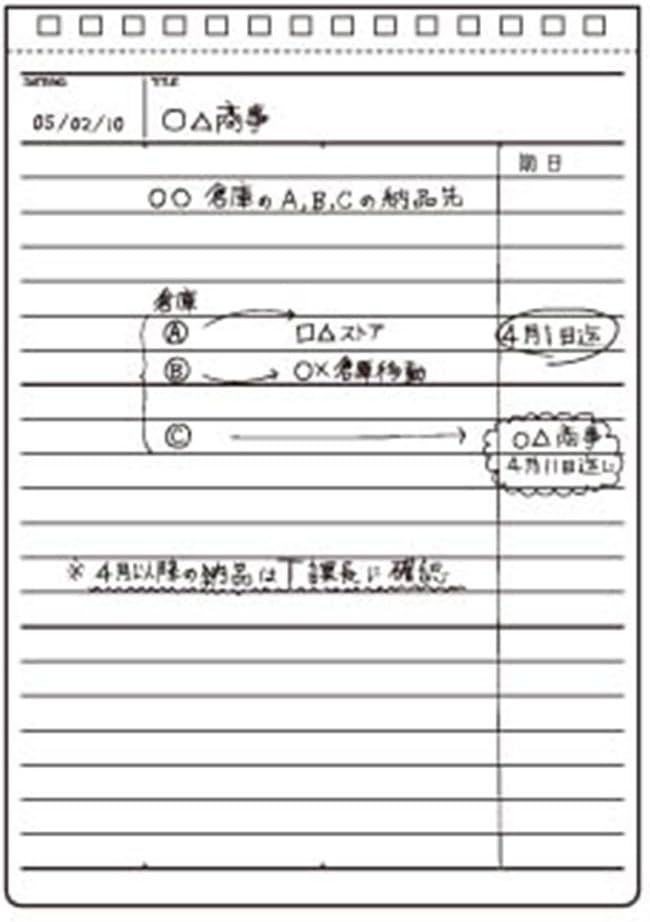 05/02/10 ○△商事
期日
○○ 倉庫のA,B,Cの納品先
倉庫
Ⓐ □△ストア 4月1日迄
Ⓑ ○×倉庫移動
Ⓒ ○△商事
4月11日迄に
※ 4月以降の納品はT課長に確認